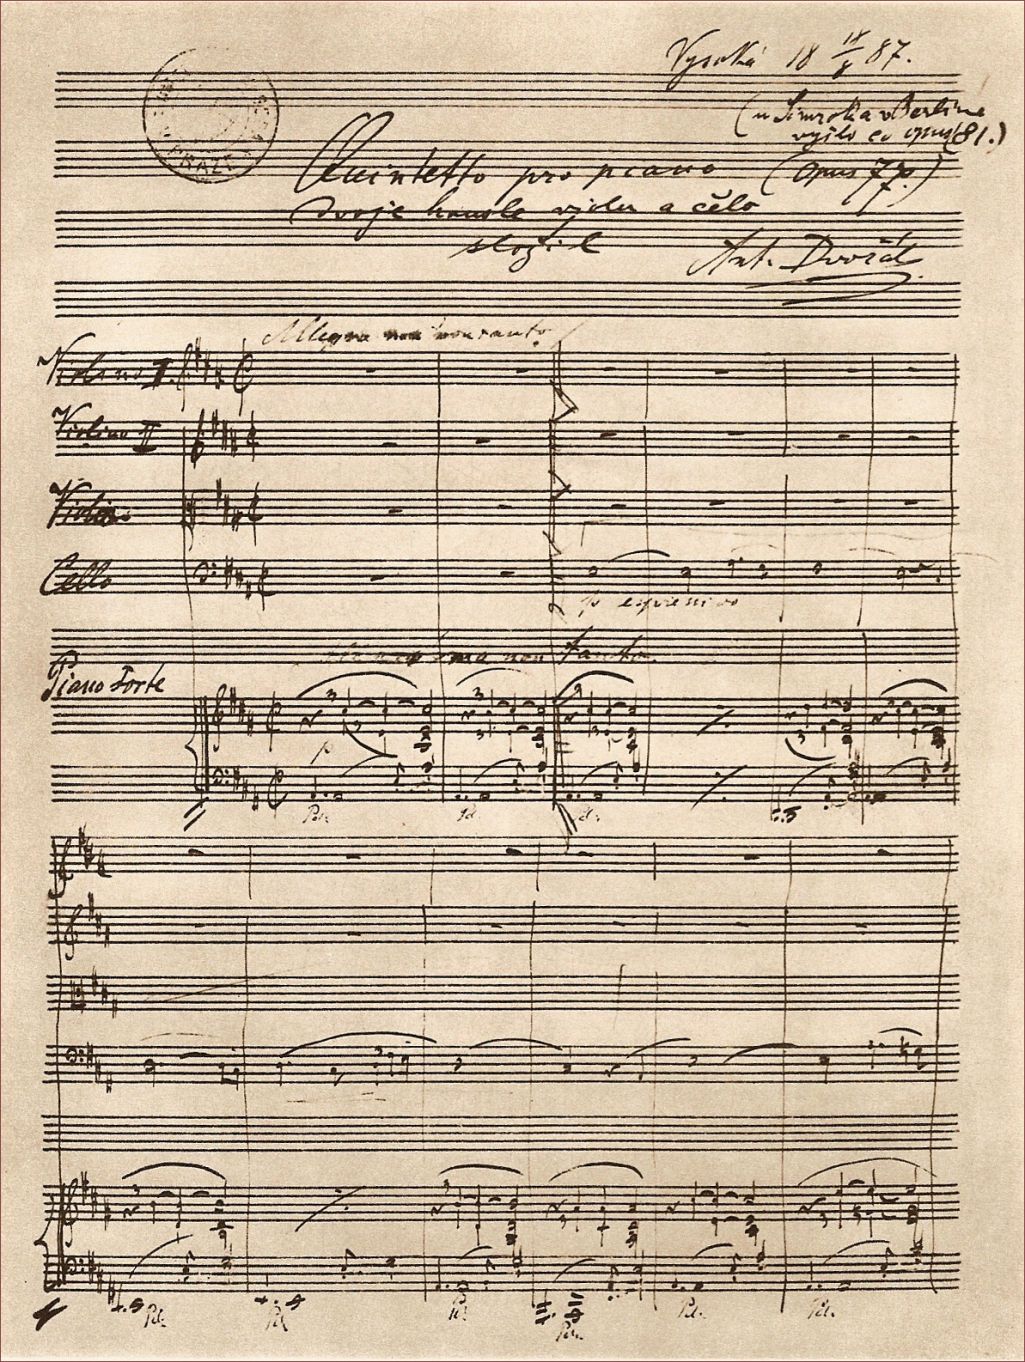 Vysoká 18 18/8 87.
(u Simrocka v Berlíně
vyšlo co opus 81.)
Quintetto pro piano (opus 77.)
dvoje housle violu a čelo
složil Ant. Dvořák
Allegro non tanto
Violino I.
Violino II
Viola
Cello
p espressivo
ma non tanto.
Piano Forte
3 3 3
p
Ped. Ped. Ped.
Ped. Ped. Ped. Ped. Ped. Ped.